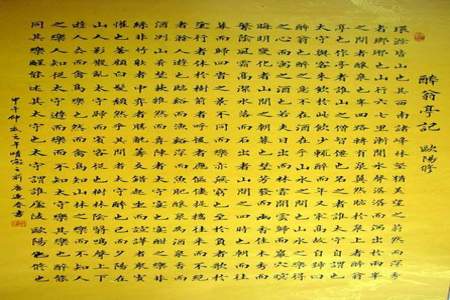 醉翁亭記 歐陽修
環滁皆山也其西南諸峰林壑尤美望之蔚然而深秀
者琅琊也山行六七里漸聞水聲潺潺而瀉出於兩峰
之間者釀泉也峰回路轉有亭翼然臨於泉上者醉翁
亭也作亭者誰山之僧智僊也名之者誰太守自謂也
太守與客來飲於此飲少輒醉而年又最高故自號曰
醉翁也醉翁之意不在酒在乎山水之間也山水之樂得
之心而寓之酒也若夫日出而林霏開雲歸而巖穴暝
晦明變化者山間之朝暮也野芳發而幽香佳木秀而
繁陰風霜高潔水落而石出者山間之四時也朝而往
暮而歸四時之景不同而樂亦無窮也至於負者歌於
塗行者休於樹前者呼後者應傴僂提攜往來而不絕
者滁人遊也臨溪而漁溪深而魚肥釀泉為酒泉香而
酒洌山肴野蔌雜然而前陳者太守宴也宴酣之樂非
絲非竹射者中弈者勝觥籌交錯起坐而諠譁者衆賓
懽也蒼顏白髮頹然乎其間者太守醉也已而夕陽在
山人影散亂太守歸而賓客從也樹林陰翳鳴聲上下
遊人去而禽鳥樂也然而禽鳥知山林之樂而不知人
之樂人知從太守遊而樂而不知太守之樂其樂也醉能
同其樂醒能述以文者太守也太守謂誰廬陵歐陽修也
甲午仲秋 書